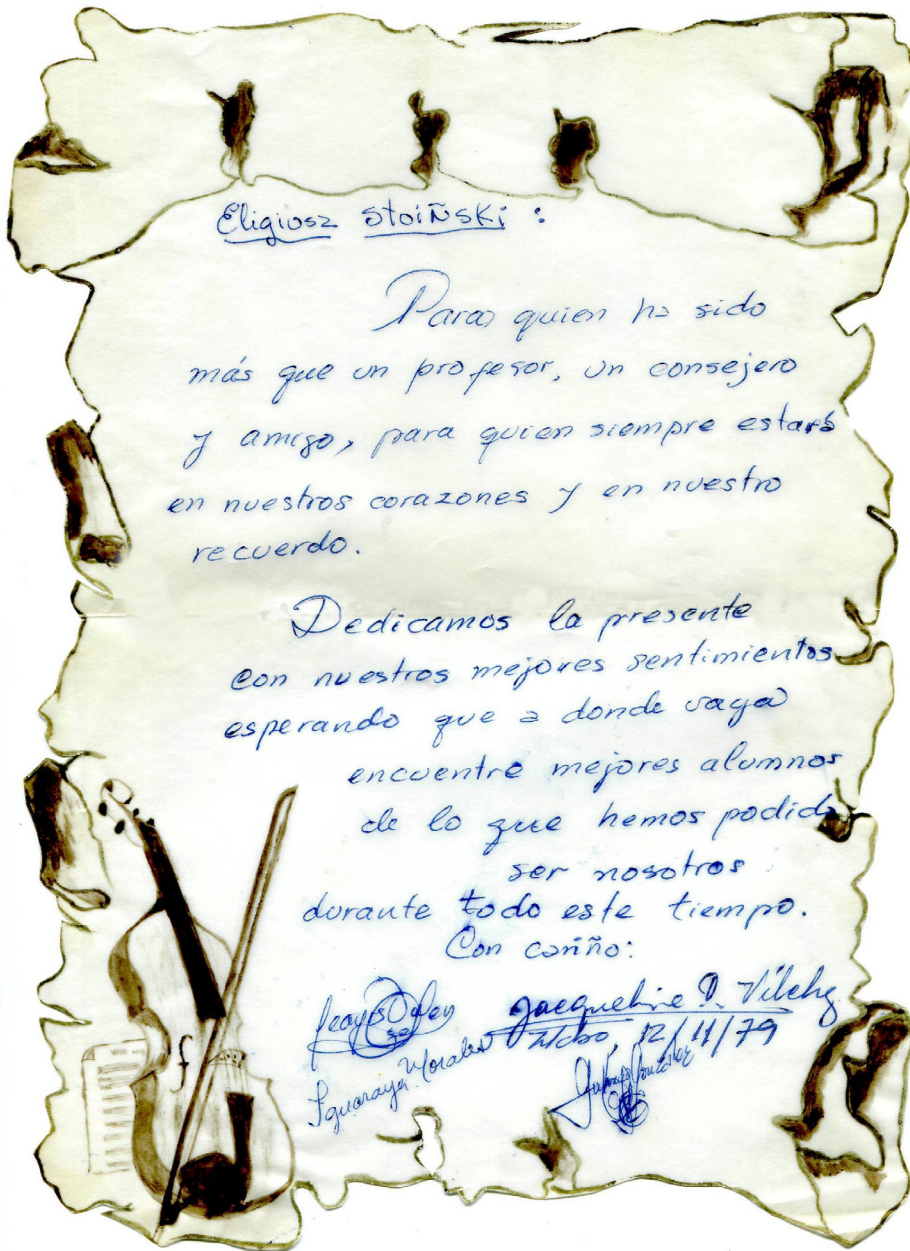 Eligiusz Stoiñski :
Para quien ha sido
más que un profesor, un consejero
y amigo, para quien siempre estará
en nuestros corazones y en nuestro
recuerdo.
Dedicamos la presente
con nuestros mejores sentimientos
esperando que a donde vaya
encuentre mejores alumnos
de lo que hemos podido
ser nosotros
durante todo este tiempo.
Con cariño:
Jacqueline D. Vilchez
M/cbo, 12/11/79
Iguaraya Morales